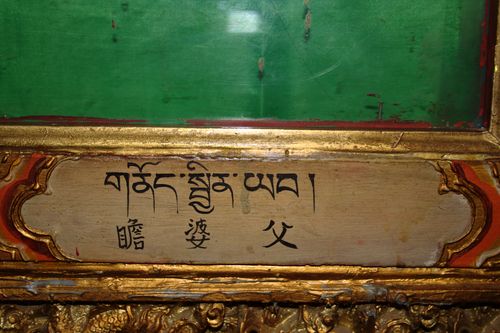 གནོད་སྦྱིན་ཡབ།
瞻 婆 父